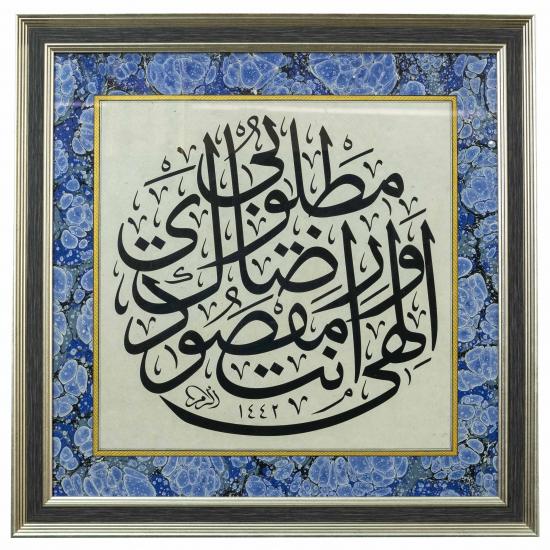 الهى انت مقصودى ورضاك مطلوبى
١٤٤٢